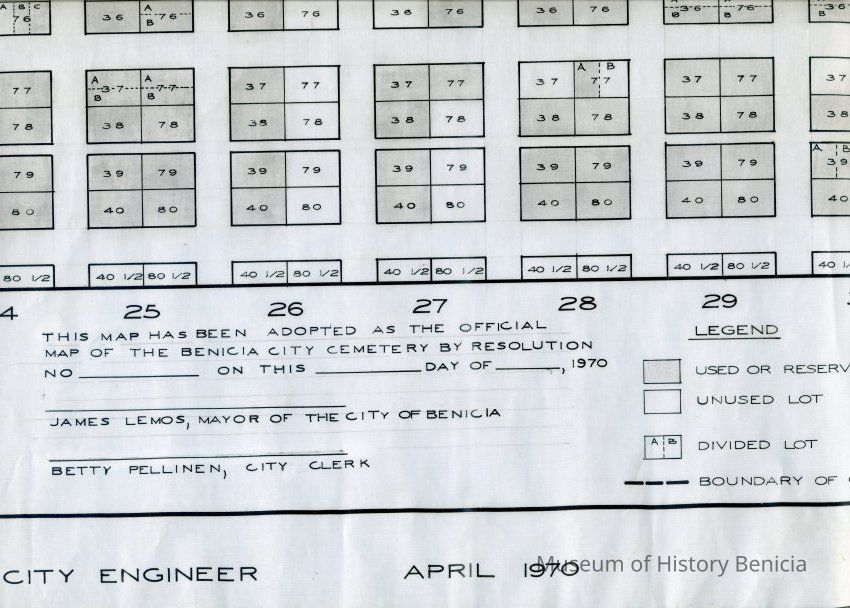 A B C 76 36 A B 76 36 76 36 76 36 76 B 36 B 76 B 36
77 A B 37 A B 77 37 77 37 77 37 A B 77 37 77 37
78 38 78 38 78 38 78 38 78 38 78 38
79 39 79 39 79 39 79 39 79 39 79 A B 39
80 40 80 40 80 40 80 40 80 40 80 40
80 1/2 40 1/2 80 1/2 40 1/2 80 1/2 40 1/2 80 1/2 40 1/2 80 1/2 40 1/2 80 1/2 40 1/
4 25 26 27 28 29
THIS MAP HAS BEEN ADOPTED AS THE OFFICIAL
MAP OF THE BENICIA CITY CEMETERY BY RESOLUTION
NO ON THIS DAY OF , 1970
JAMES LEMOS, MAYOR OF THE CITY OF BENICIA
BETTY PELLINEN, CITY CLERK
LEGEND
USED OR RESERV
UNUSED LOT
A B DIVIDED LOT
BOUNDARY OF
CITY ENGINEER APRIL 1970
Museum of History Benicia